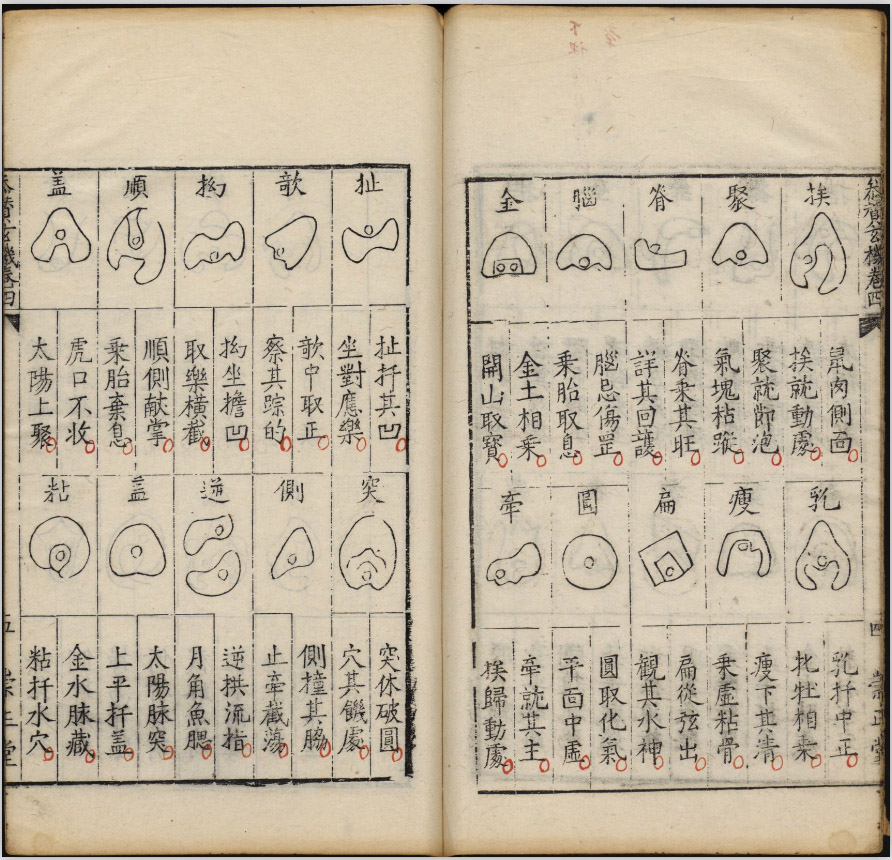 叅賛玄機卷四
挨
肉側面
挨就動處
聚
聚就節泡
氣塊粘蹤
脊
脊乗其旺
詳其回護
腦
腦忌傷罡
乗胎取息
金
金土相乗
開山取寶
乳
乳扦中正
牝牡相乗
瘦
瘦下其清
乗虛粘骨
扁
扁從弦出
觀其水神
圓
圓取化氣
平面中虛
牽
牽就其主
挨歸動處
四
崇正堂
扯
扯扦其凹
坐對應樂
歌
歌中取正
察其踪的
抝
抝坐擔凹
取樂橫截
順
順側献掌
乗胎棄息
盖
虎口不收
太陽上聚
突
突休破圓
穴其饑處
側
側撞其脇
止牽截蕩
逆
逆拱流指
月角魚腮
盖
太陽脉突
上平扦盖
粘
金水脉藏
粘扦水穴
叅賛玄機卷四
五
崇正堂